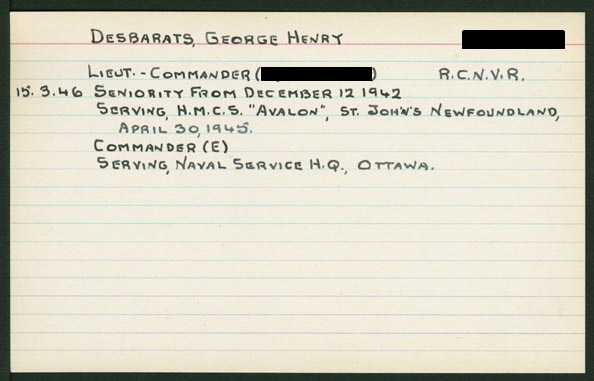 DESBARATS, GEORGE HENRY
LIEUT.-COMMANDER ( ) R.C.N.V.R.
15.3.46 SENIORITY FROM DECEMBER 12 1942
SERVING, H.M.C.S. "AVALON", ST. JOHN'S NEWFOUNDLAND,
APRIL 30, 1945.
COMMANDER (E)
SERVING, NAVAL SERVICE H.Q., OTTAWA.